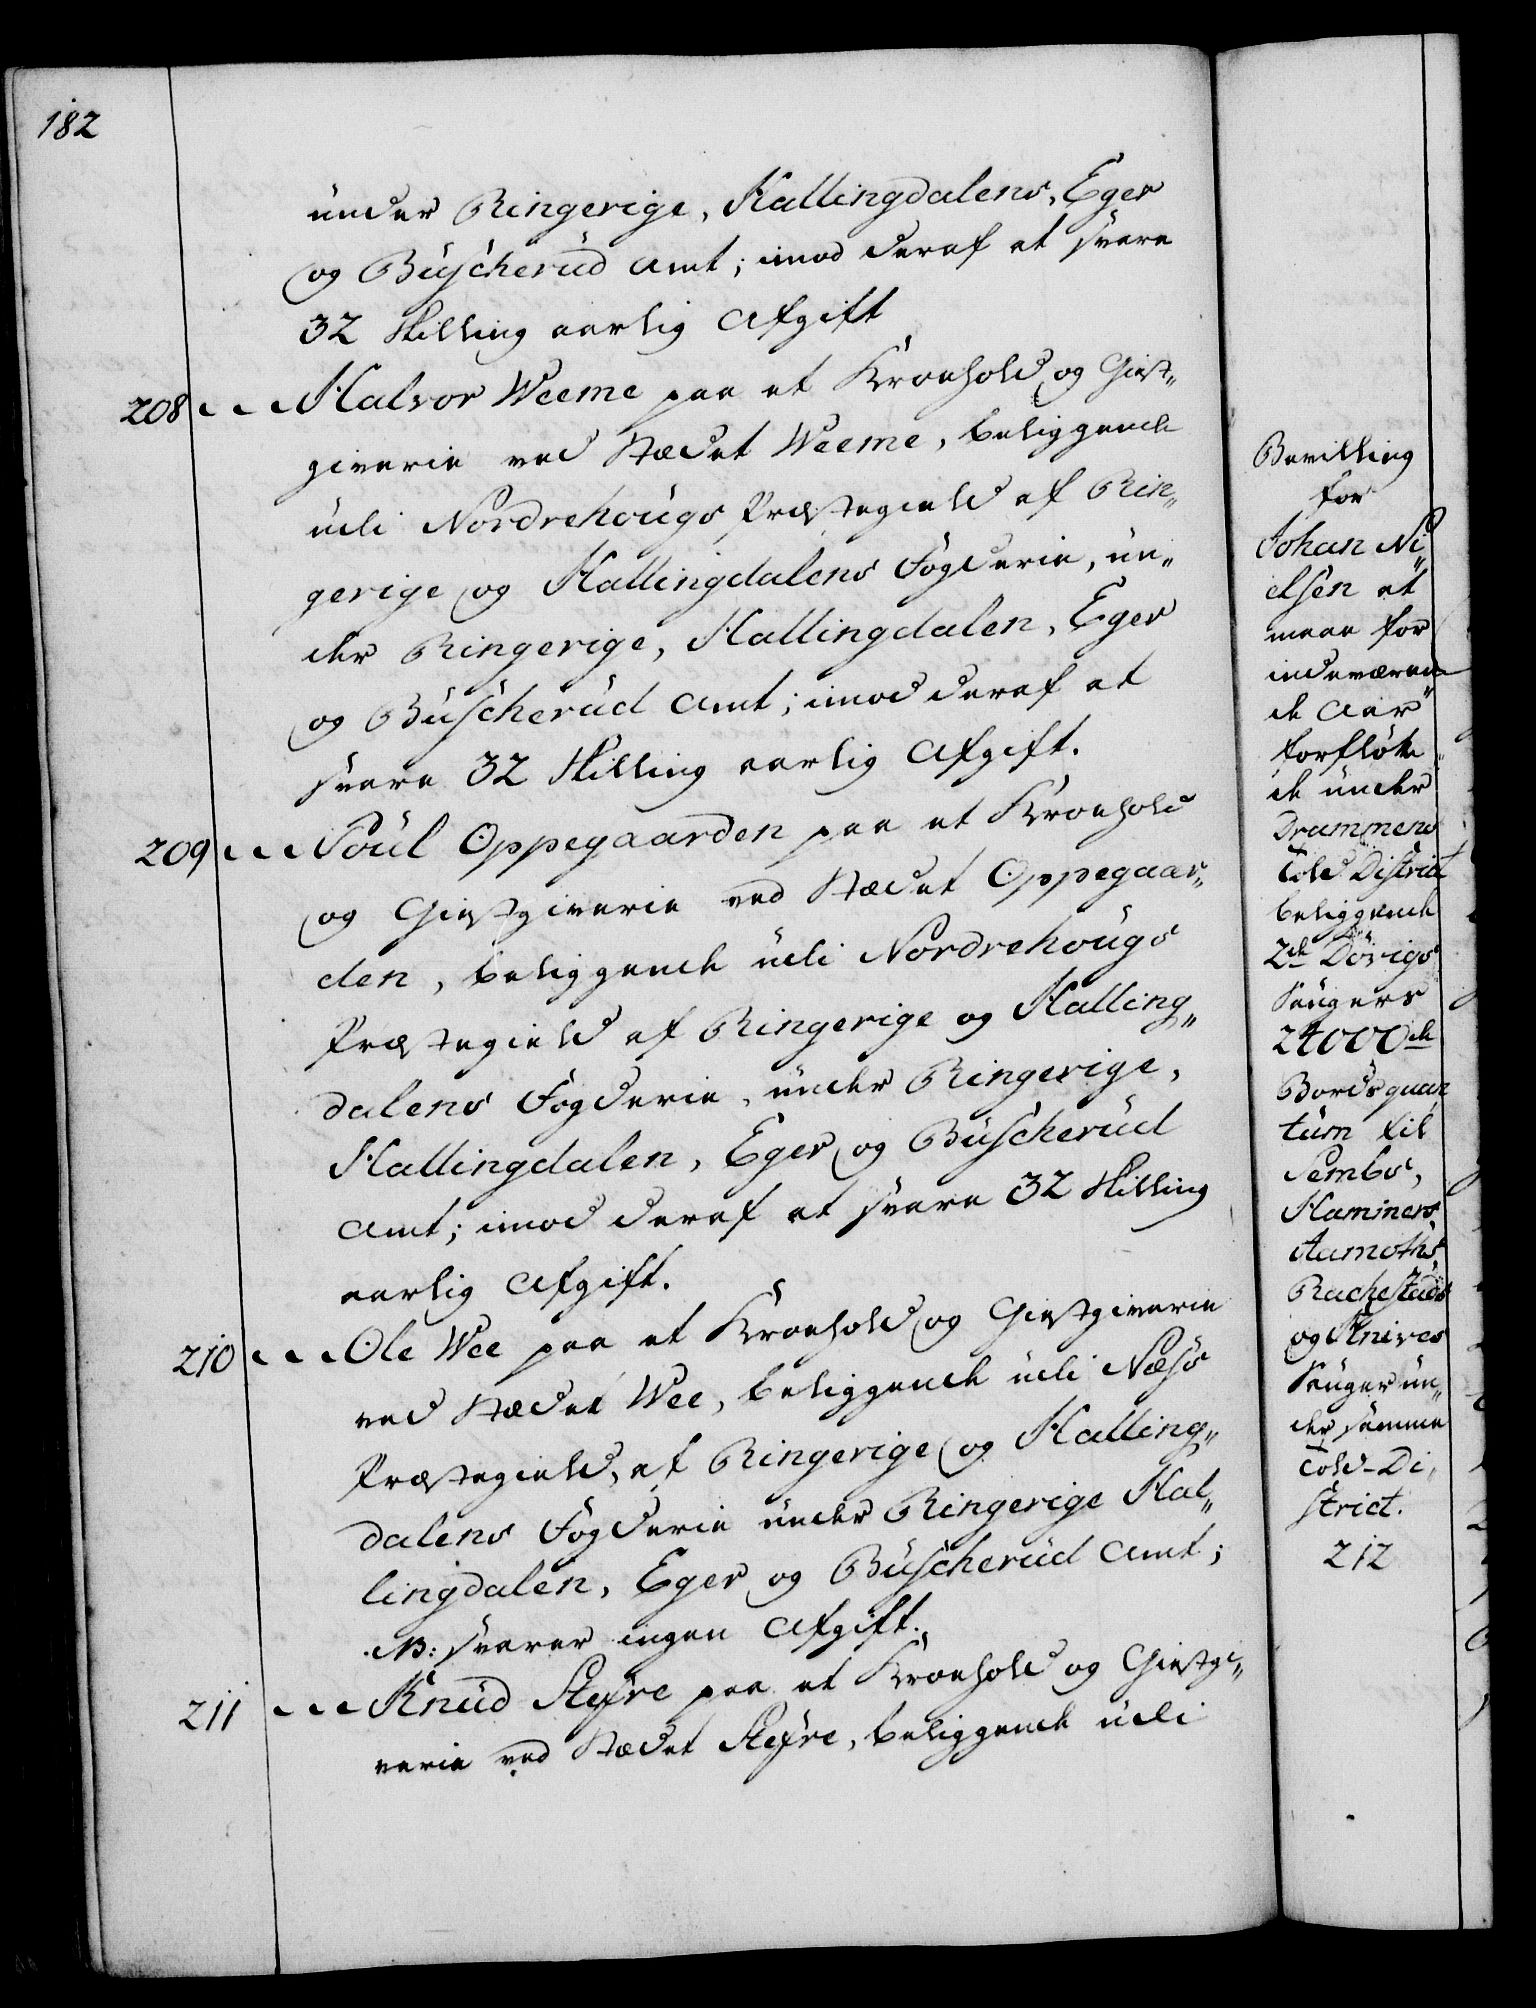 182
under Ringerige, Hallingdalens, Eger
og Buscherud Amt; imod deraf at svare
32 Skilling aarlig Afgift
208 Halvor Weeme paa et Kroehold og Giest„
giverie ved Stædet Weeme, beliggende
udi Nordrehougs Præstegield af Rin„
gerige og Hallingdalens Fogderie, un„
der Ringerige, Hallingdalen, Eger
og Buscherud Amt; imod deraf at
svare 32 Skilling aarlig Afgift.
209 Poul Oppegaarden paa et Kroehold
og Giestgiverie ved Stædet Oppegaar„
den, beliggende udi Nordrehougs
Præstegield af Ringerige og Halling„
dalens Fogderie, under Ringerige,
Hallingdalen, Eger og Buscherud
Amt; imod deraf at svare 32 Skilling
aarlig Afgift.
210 Ole Wee paa et Kroehold og Giestgiverie
ved Stædet Wee, beliggende udi Næss
Præstegield, af Ringerige og Halling„
dalens Fogderie under Ringerige Hal„
lingdalen, Eger og Buscherud Amt;
NB: svarer ingen Afgift.
211 Knud paa et Kroehold og Giestgi„
verie ved Stædet beliggende udi
Bevilling
for
Johan Ni„
elsen at
maae for
indeværen„
de Aar
forfløtte
de under
Drammens
Told District
beliggende
2de Dørigs
Saugers
24000de
Bords quan
tum til
Sembs,
Haminers
Aamoths,
Rachestads
og Knives
Sauger un„
der samme
Told-Di„
strict.
212